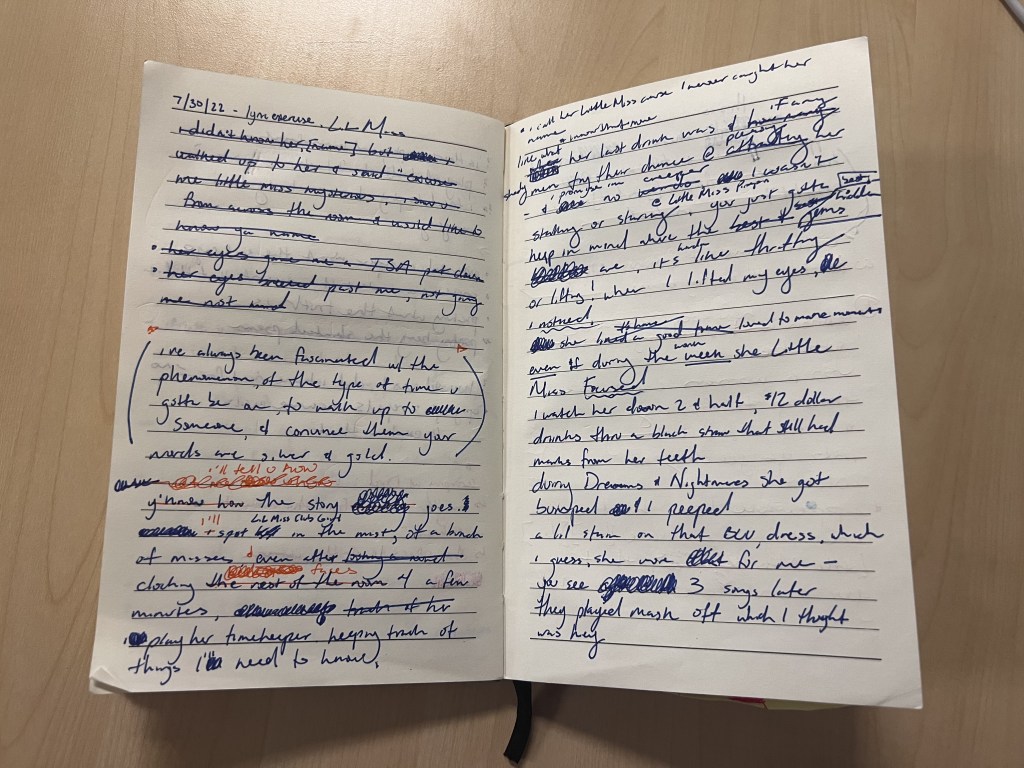 7/30/22 - lyric exercise, Lil Miss
i didn't know her, [name] but
walked up to her & said "excuse
me little miss mysterious, i saw u
from across the room & would like to
know ya name
• her eyes gave me a TSA pat down
• her eyes breezed past me, not giving
me not
i've always been fascinated w/ the
phenomenon of the type of time u
gotta be on, to walk up to
someone, & convince them your
words are silver & gold.
i'll tell u how
y'know how the story goes.
i'll Lil Miss Club Goin
spot in the midst, of a bunch
of misses, even after looking around
faces
clocking the rest of the room 4 a few
minutes, track of her
i play her timekeeper keeping track of
things i'll need to know.
• i call her Little Miss cause i never caught her
name
like what her last drink was & if any
men try their chance @ attracting her
& i promise im no creeper i wasn't
@ Little Miss Prayin
stalking or staring, you just gotta
keep in mind where the best & hidden
gems
are, it's like thrifting
or lifting! when i lifted my eyes,
i noticed.
she had a good time lived to make moments
even if during the work week she Little
Miss Focused
i watch her down 2 & half, $12 dollar
drinks thru a black straw that still had
marks from her teeth
during Dreams & Nightmares she got
bumped & i peeped
a lil stain on that dress, which
i guess, she wore for me -
you see 3 songs later
they played mask off which i thought
was key